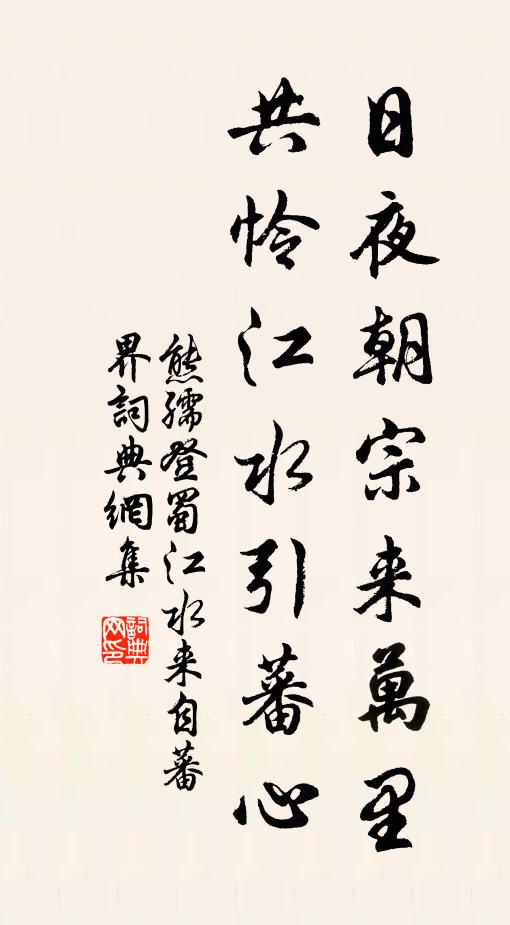 日夜朝宗来萬里
共怜江水引蕃心
熊孺登蜀江水来自蕃
界詞典網集
詞典
网印